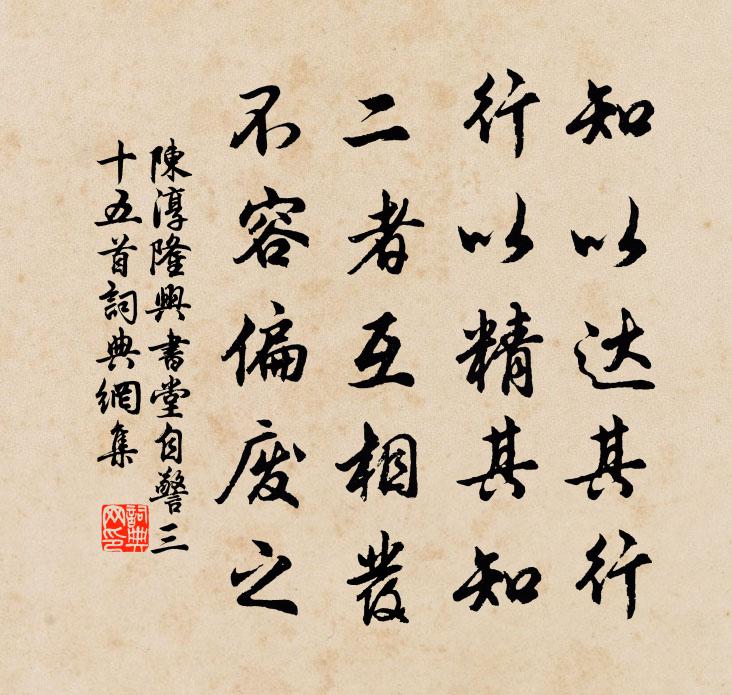 知以达其行
行以精其知
二者互相發
不容偏废之
陳淳隆興書堂自警三
十五首詞典網集
詞典
网印